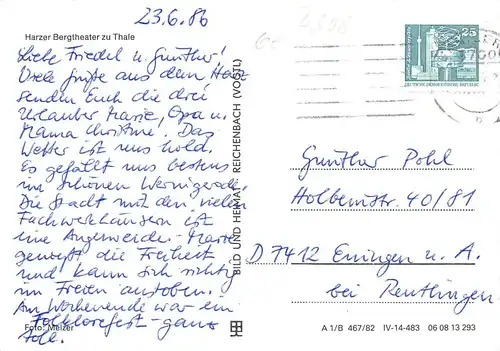 23.6.86
Harzer Bergtheater zu Thale
Liebe Friedel u. Günther!
Viele Grüße aus dem Harz
senden Euch die drei
Urlauber Marie, Opa u.
Mama Christine. Das
Wetter ist uns hold.
Es gefällt uns bestens
im schönen Wernigerode.
Die Stadt mit den vielen
Fachwerkhäusern ist
eine Augenweide. Marie
genießt die Freiheit
und kann sich richtig
im Freien austoben.
Am Wochenende war ein
Folklorefest - ganz
toll.
Foto: Melzer
BILD UND HEIMAT REICHENBACH (VOGTL)
25
DEUTSCHE DEMOKRATISCHE REPUBLIK
Günther Pohl
Holbeinstr. 40/81
D 7412 Eningen u. A.
bei Reutlingen
A 1/B 467/82 IV-14-483 06 08 13 293